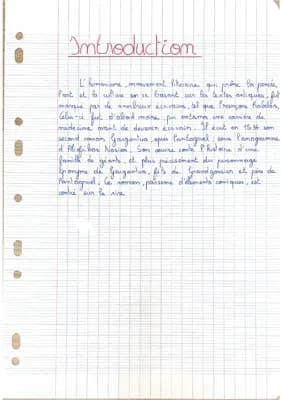 Introduction
L'humanisme, mouvement littéraire qui prône la pensée,
l'art et la culture en se basant sur les textes antiques, fut
marqué par de nombreux écrivains, tel que François Rabelais.
Celui-ci fut d'abord moine, puis entama une carrière de
médecine avant de devenir écrivain. Il écrit en 1534 son
second roman, Gargantua, après Pantagruel, sous l'anagramme
d'Alcofribas Nasier. Son œuvre conte l'histoire d'une
famille de géants, et plus précisément du personnage
éponyme de Gargantua, fils de Grandgousier et père de
Pantagruel. Ce roman, parsemé d'éléments comiques, est
centré sur le rire.